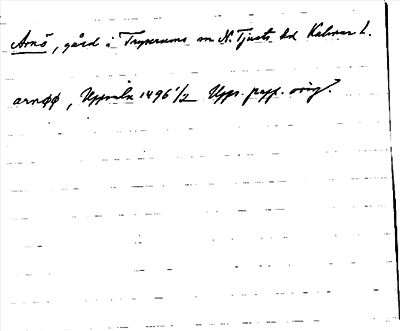 Arnö, gård i Tryserums sn N. Tjusts hd Kalmar l.
arnøø, Uppsala 1496 1/2 Upps. papp. orig.